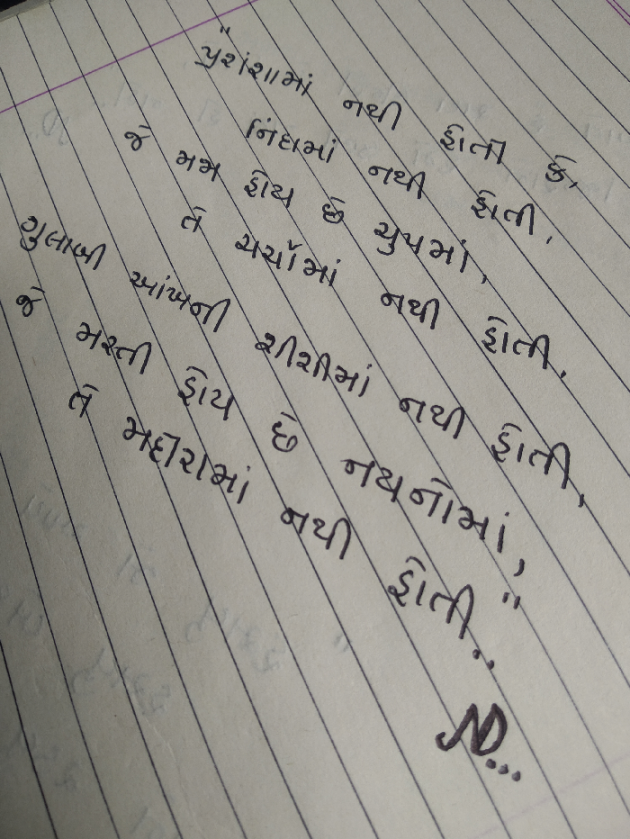 "પ્રશંશામાં નથી હોતી કે,
નિંદામાં નથી હોતી,
જે મઝા હોય છે ચુપમાં,
તે ચર્ચામાં નથી હોતી.
ગુલાબી આંખની શીશીમાં નથી હોતી,
જે મસ્તી હોય છે નયનોમાં,
તે મદીરામાં નથી હોતી.."
ND...